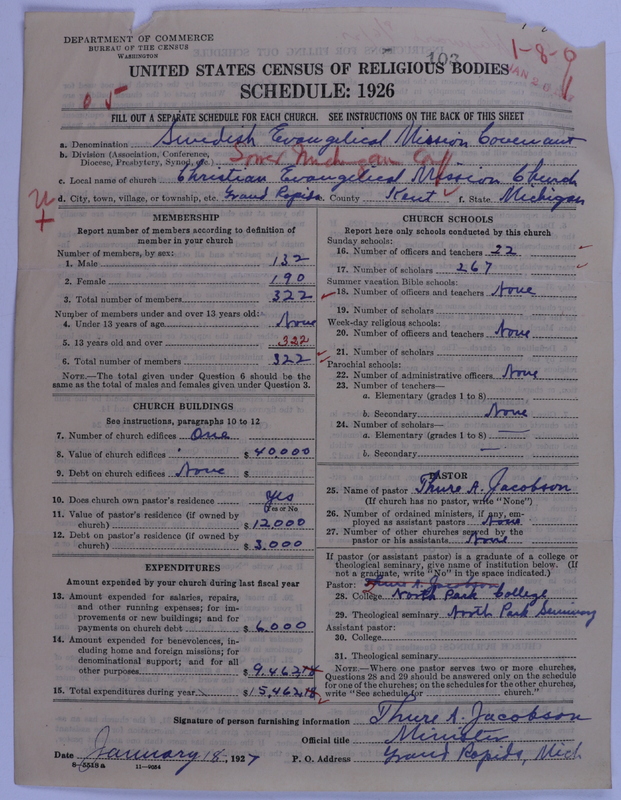 DEPARTMENT OF COMMERCE
BUREAU OF THE CENSUS
WASHINGTON
103
1-8-9
UNITED STATES CENSUS OF RELIGIOUS BODIES
SCHEDULE: 1926
FILL OUT A SEPARATE SCHEDULE FOR EACH CHURCH. SEE INSTRUCTIONS ON THE BACK OF THIS SHEET
a. Denomination Swedish Evangelical Mission Covenant
b. Division (Association, Conference, Diocese, Presbytery, Synod, etc.) Lower Michigan Conf
c. Local name of church Christian Evangelical Mission Church
d. City, town, village, or township, etc. Grand Rapids e. County Kent f. State Michigan
MEMBERSHIP
Report number of members according to definition of
member in your church
Number of members, by sex:
1. Male 132
2. Female 190
3. Total number of members 322
Number of members under and over 13 years old:
4. Under 13 years of age None
5. 13 years old and over 322
6. Total number of members 322
NOTE.—The total given under Question 6 should be the
same as the total of males and females given under Question 3.
CHURCH BUILDINGS
See instructions, paragraphs 10 to 12
7. Number of church edifices One
8. Value of church edifices $ 40000
9. Debt on church edifices None $
10. Does church own pastor's residence Yes
Yes or No
11. Value of pastor's residence (if owned by
church) $ 12,000
12. Debt on pastor's residence (if owned by
church) $ 3,000
EXPENDITURES
Amount expended by your church during last fiscal year
13. Amount expended for salaries, repairs,
and other running expenses; for im-
provements or new buildings; and for
payments on church debt $ 6,000
14. Amount expended for benevolences, in-
cluding home and foreign missions; for
denominational support; and for all
other purposes $ 9,462 18
15. Total expenditures during year $ 15,462 18
CHURCH SCHOOLS
Report here only schools conducted by this church
Sunday schools:
16. Number of officers and teachers 22
17. Number of scholars 267
Summer vacation Bible schools:
18. Number of officers and teachers None
19. Number of scholars
Week-day religious schools:
20. Number of officers and teachers None
21. Number of scholars
Parochial schools:
22. Number of administrative officers None
23. Number of teachers—
a. Elementary (grades 1 to 8)
b. Secondary None
24. Number of scholars—
a. Elementary (grades 1 to 8) —
b. Secondary —
PASTOR
25. Name of pastor Thure A. Jacobson
(If church has no pastor, write "None")
26. Number of ordained ministers, if any, em-
ployed as assistant pastors None
27. Number of other churches served by the
pastor or his assistants None
If pastor (or assistant pastor) is a graduate of a college or
theological seminary, give name of institution below. (If
not a graduate, write "No" in the space indicated.)
Pastor: Thure A. Jacobson
28. College North Park College
29. Theological seminary North Park Seminary
Assistant pastor:
30. College
31. Theological seminary
NOTE.—Where one pastor serves two or more churches,
Questions 28 and 29 should be answered only on the schedule
for one of the churches; on the schedules for the other churches,
write "See schedule for church."
Signature of person furnishing information Thure A. Jacobson
Official title Minister
Date January 18, 1927 P. O. Address Grand Rapids, Mich
8-5518a 11-9054